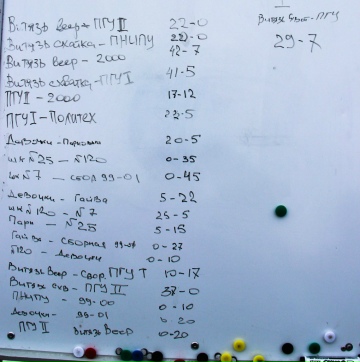 Витязь Веер - ПГУ II 22-0
Витязь схайка - ПНИПУ 22-0
Витязь Веер - 2000 42-7
Витязь схватка - ПГУ I 41-5
ПГУ I - 2000 17-12
ПГУ I - Политех 22-5
Девочки - Парковый 20-5
шк N25 - N120 0-35
шк N7 - сбор 99-01 0-45
Девочки - Гайва 5-22
шк N120 - N7 25-5
Парк - N25 5-15
Гайва - Сборная 0-27
N120 - Девочки 0-10
Витязь Веер - Свор. ПГУ Т 10-17
Витязь схв - ПГУ II 37-0
ПНИПУ - 99-00 0-10
Девочки - 99-01 0-20
ПГУ II Витязь Веер 0-20
I
Витязь - ПГУ
29-7